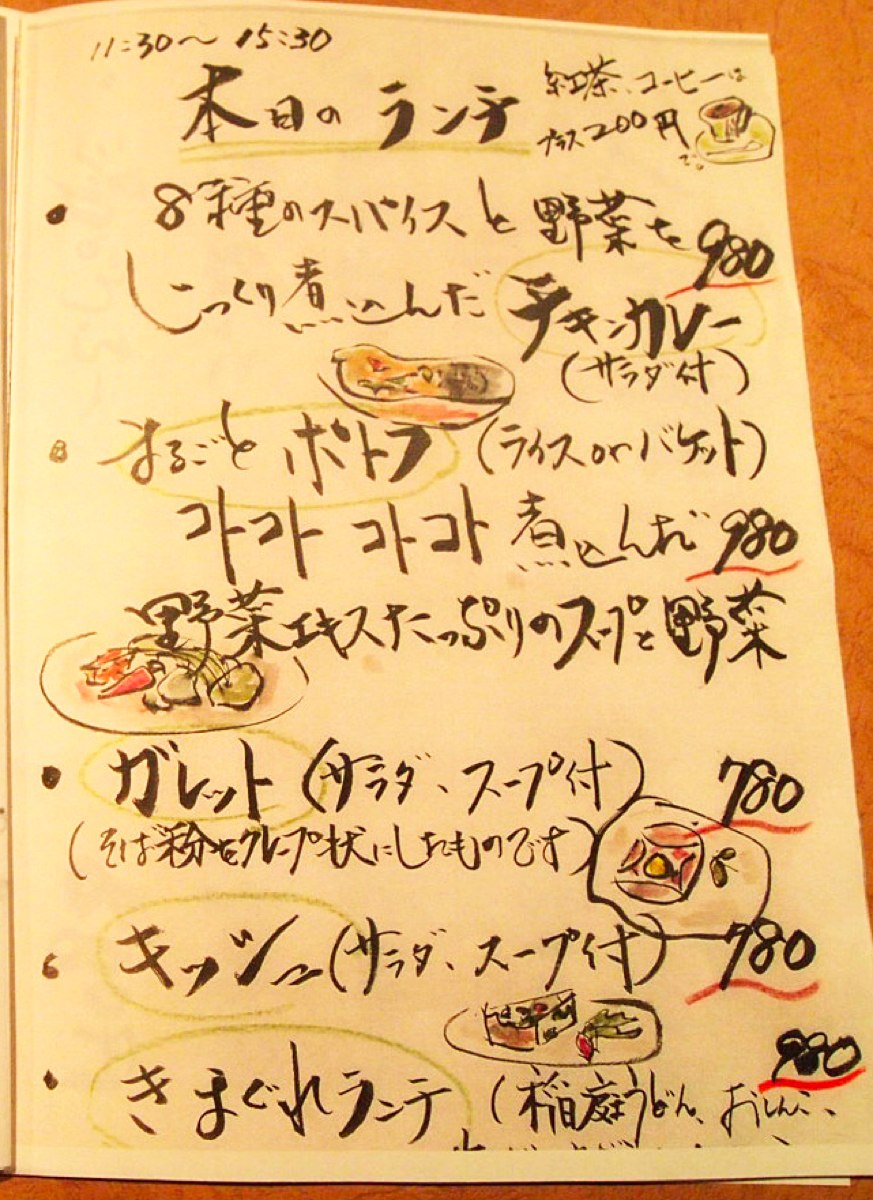 11:30〜15:30
本日のランチ
紅茶、コーヒーは
プラス200円
です
8種のスパイスと野菜を
980
じっくり煮込んだ チキンカレー
(サラダ付)
まるごとポトフ (ライスorバケット)
コトコトコトコト煮込んだ 980
野菜エキスたっぷりのスープと野菜
ガレット (サラダ、スープ付) 780
(そば粉をクレープ状にしたものです)
キッシュ (サラダ、スープ付) 780
980
きまぐれランチ (稲庭うどん、おしんこ、